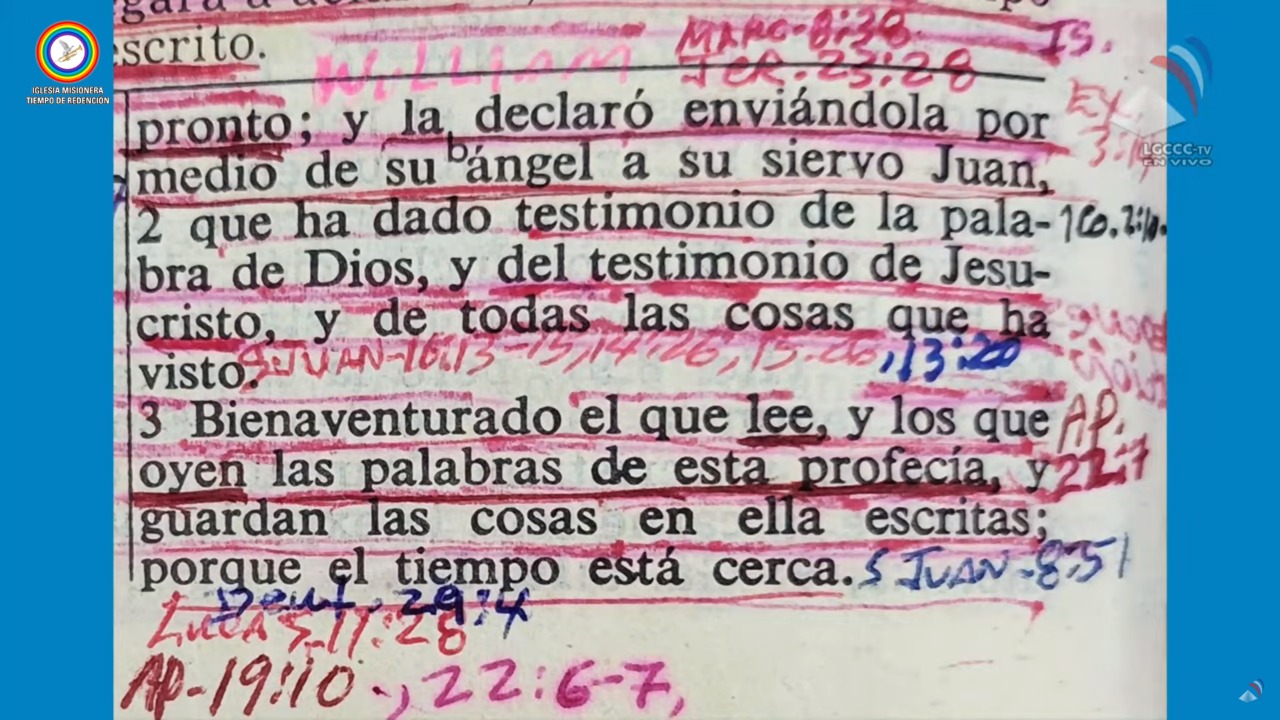 escrito.
WiLLiam
MARC-8:38.
JER.-23:28
IS.
IGLESIA MISIONERA
TIEMPO DE REDENCIÓN
LGCCC-TV
EN VIVO
pronto; y la declaró enviándola por
medio de su bángel a su siervo Juan,
2 que ha dado testimonio de la pala-
bra de Dios, y del testimonio de Jesu-
cristo, y de todas las cosas que ha
visto.
S.JUAN-16:13-15,14:26,15:26,13:20
3 Bienaventurado el que lee, y los que
AP.
oyen las palabras de esta profecía, y
22:7
guardan las cosas en ella escritas;
porque el tiempo está cerca.
S JUAN-8:51
Deut. 29:4
Lucas-11:28
AP-19:10.,22:6-7,